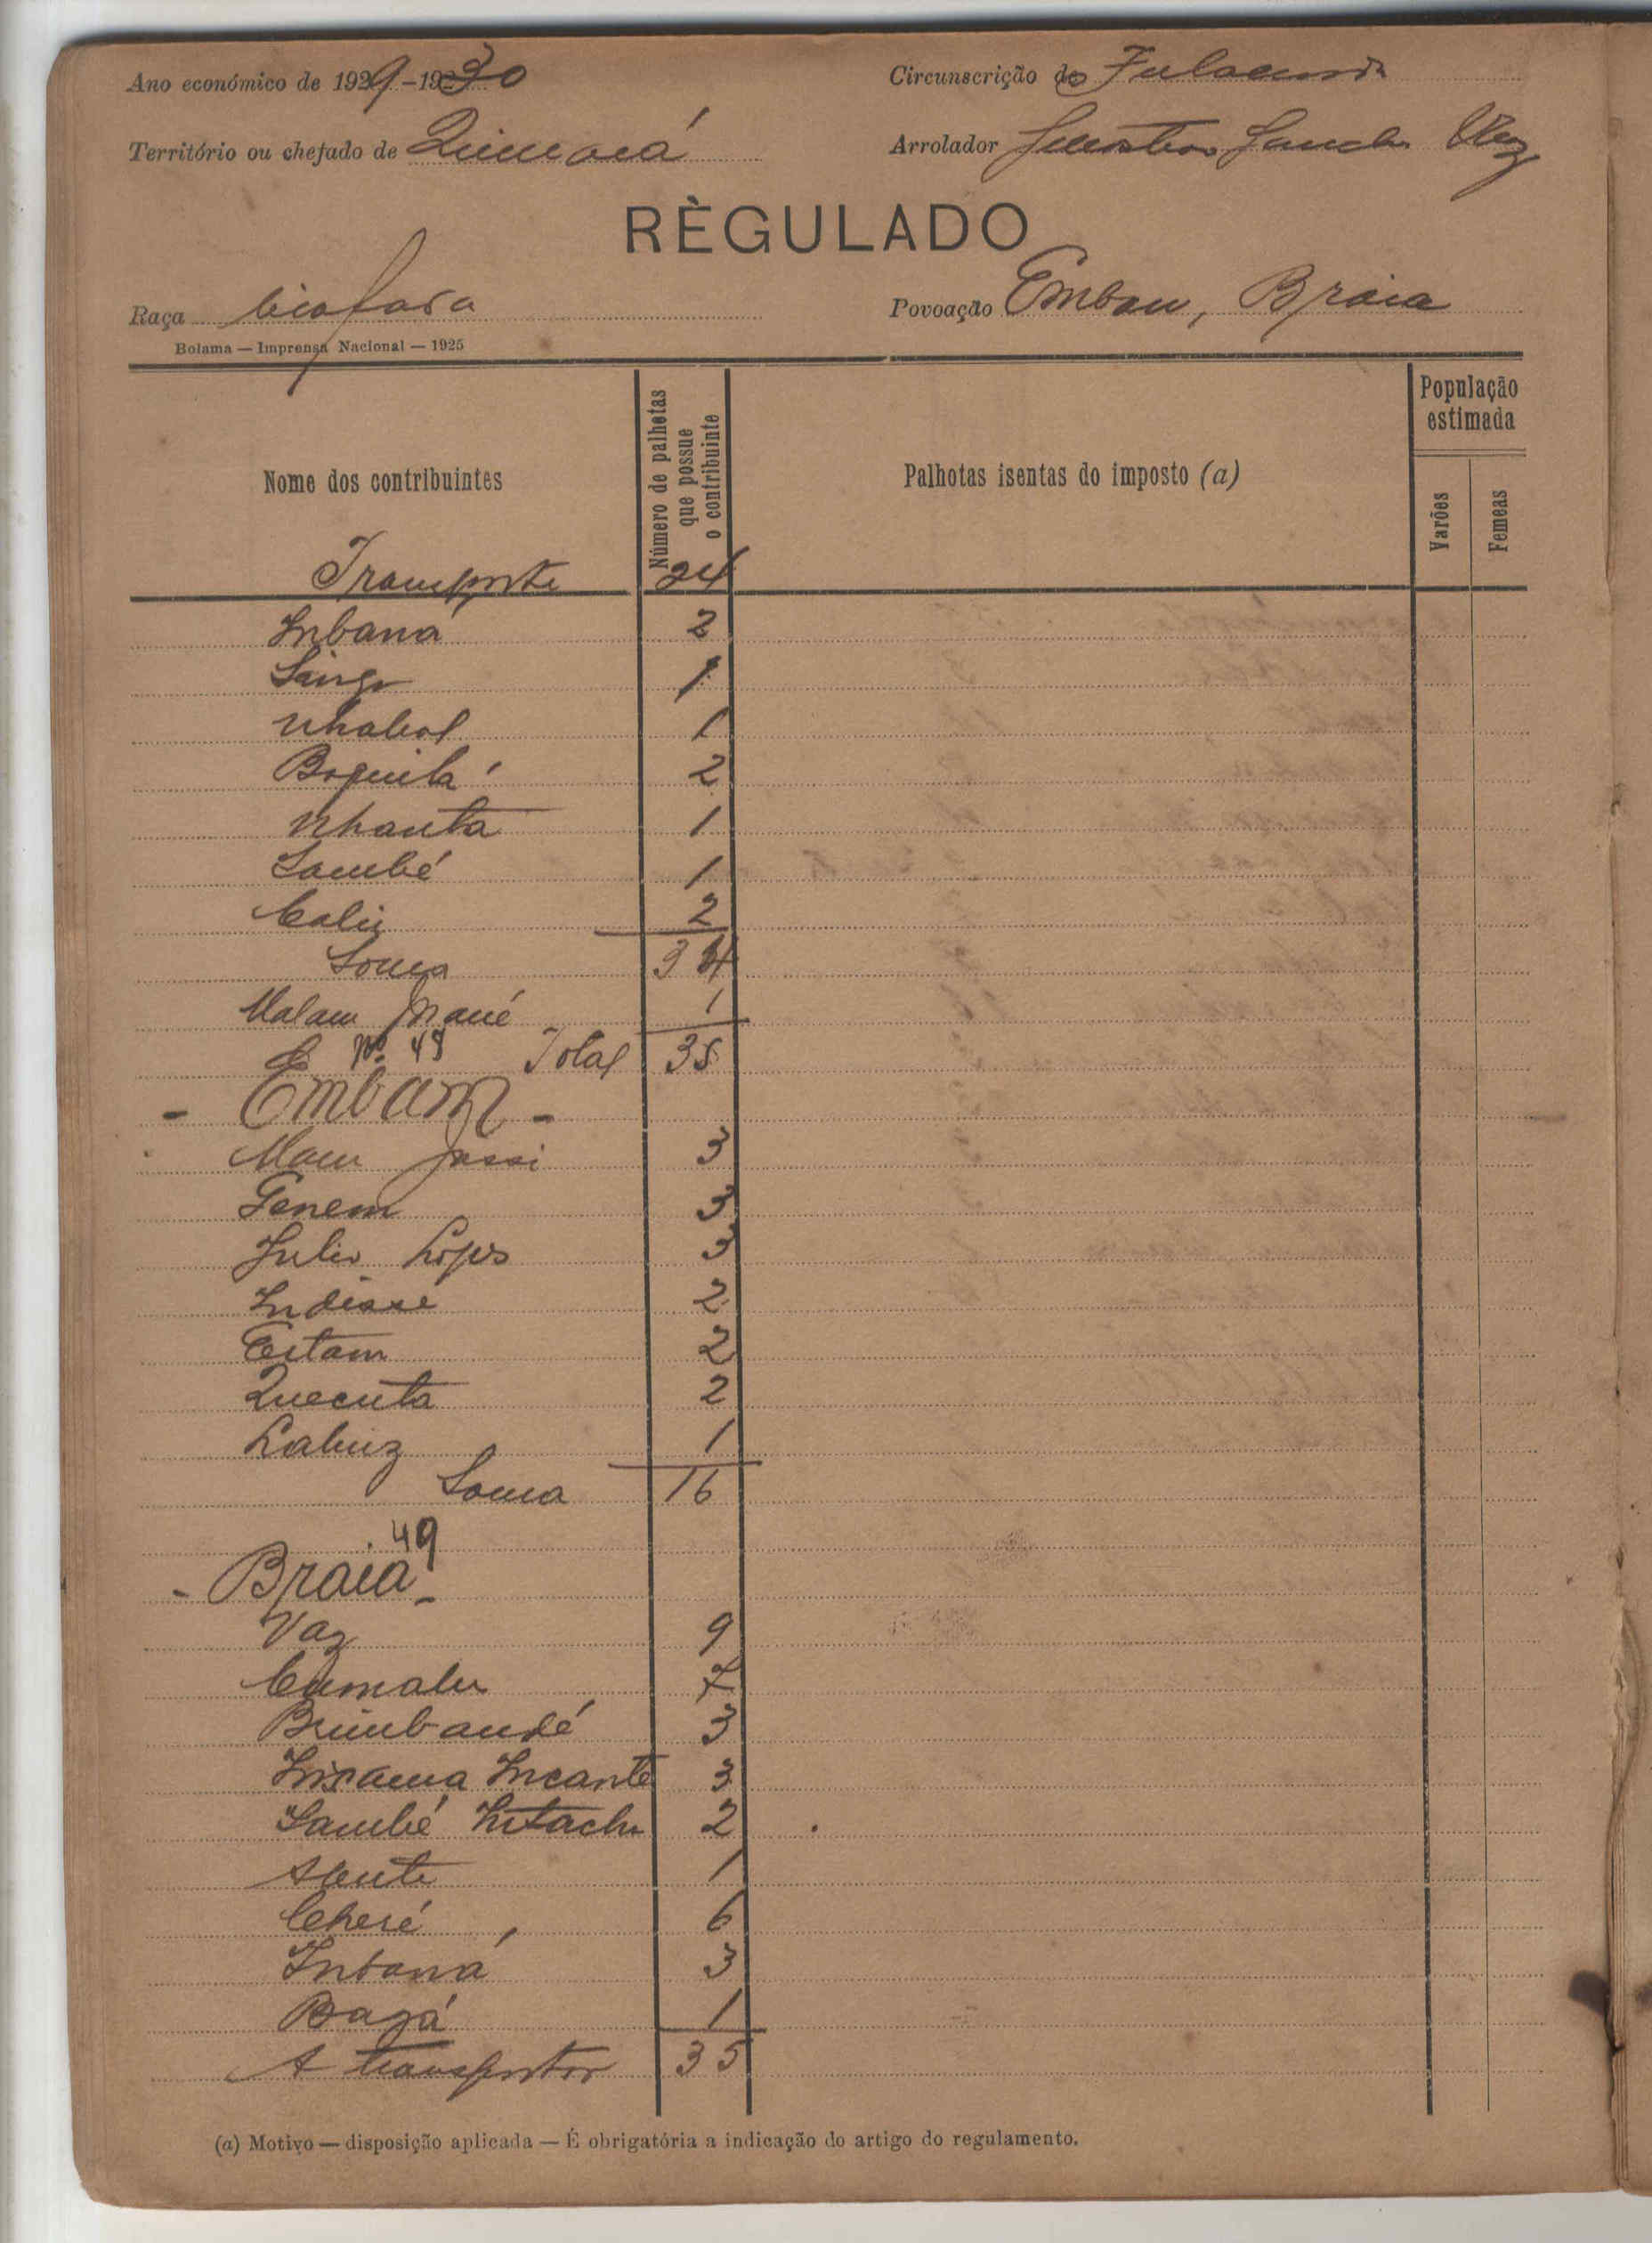 Ano económico de 1929-1930 Circunscrição de Fulacunda
Território ou chefado de Quinará Arrolador Sanches Vaz
RÈGULADO
Raça biafada Povoação Embam, Braia
Bolama — Imprensa Nacional — 1925
Nome dos contribuintes
Número de palhotas que possue o contribuinte
Palhotas isentas do imposto (a)
População estimada
Varões
Femeas
Transporte 24
Inbaná 2
Sanga 1
Nhabol 1
Boquilá 2
Nhanta 1
Sambé 1
Caliz 2
Soma 34
Malam Mané 1
Nº 48 Total 35
- Embam -
Mam Jassi 3
Fenem 3
Julio Lopes 3
Indissé 2
Citam 2
Quecuta 2
Labuz 1
Soma 16
49
- Braia -
Vaz 9
Cumalu 7
Brimbandé 3
Incante 3
Sambé Intachu 2
Sente 1
Cheré 6
Inbaná 3
Bagá 1
A transportar 35
(a) Motivo — disposição aplicada — É obrigatória a indicação do artigo do regulamento.